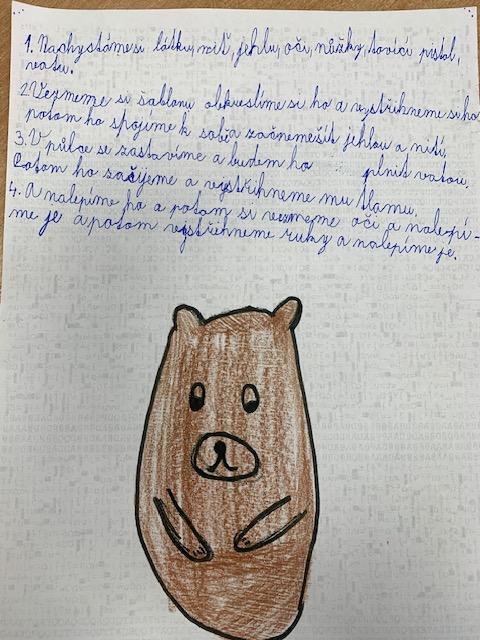 1. Nachystáme si látku, niť, jehlu, oči, nůžky, tavící pistol,
vatu.
2. Vezmeme si šablonu obkreslíme si ho a vystřihneme si ho
potom ho spojíme k sobě a začneme šít jehlou a nití,
3. V půlce se zastavíme a budem ho plnit vatou,
Potom ho sašijeme a vystřihneme mu tlamu.
4. A nalepíme ho a potom si vezmeme oči a nalepí-
me je a potom vystřihneme ruky a nalepíme je.